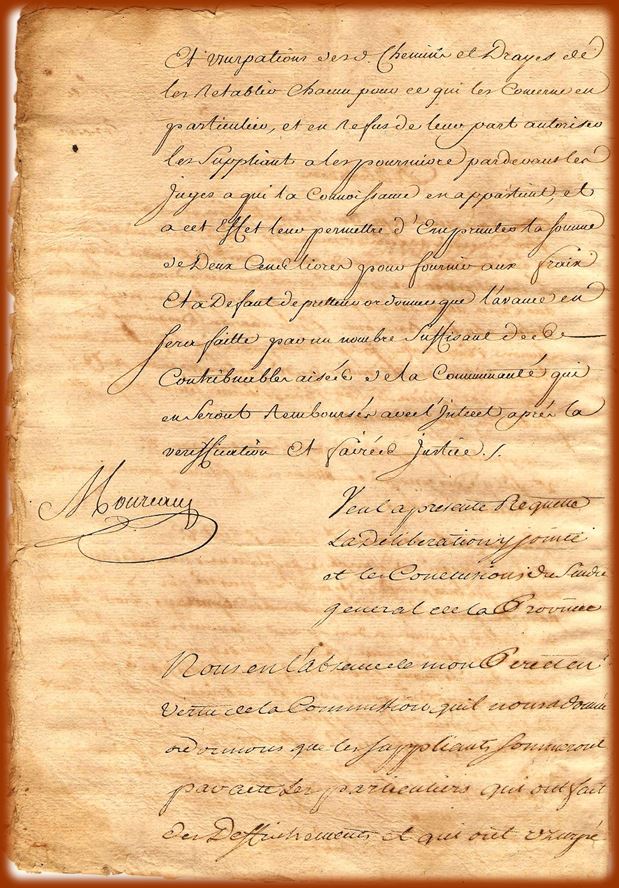 Et Uzurpations desd. Chemins et Drayes de
les Retablir Chacun pour ce qui les Concerne en
particulier, et en Refus de leur part autoriser
les Suppliant a les poursuivre pardevant les
Juges a qui la Connoissance en appartient, et
a cet Effet leur permettre d'Emprunter la somme
de Deux Cens Livres pour fournir aux fraix
Et a Defaut de pretteur ordonner que l'avance en
sera faitte par un nombre suffisant de
Contribuables aisés de la Communauté qui
en seront Remboursés avec l'interet après la
veriffication Et faires Justice ./.
Moureau
Veu la presente Requette
La Déliberation y jointe
et les Conclusions du Sindic
general de la Province
Nous en l'absence de mon Pere et en
vertu de la Commission qu'il nous a donnée
ordonnons que les suppliants sommeront
par acte Les particuliers qui ont fait
des Deffrichements et qui ont uzurpé